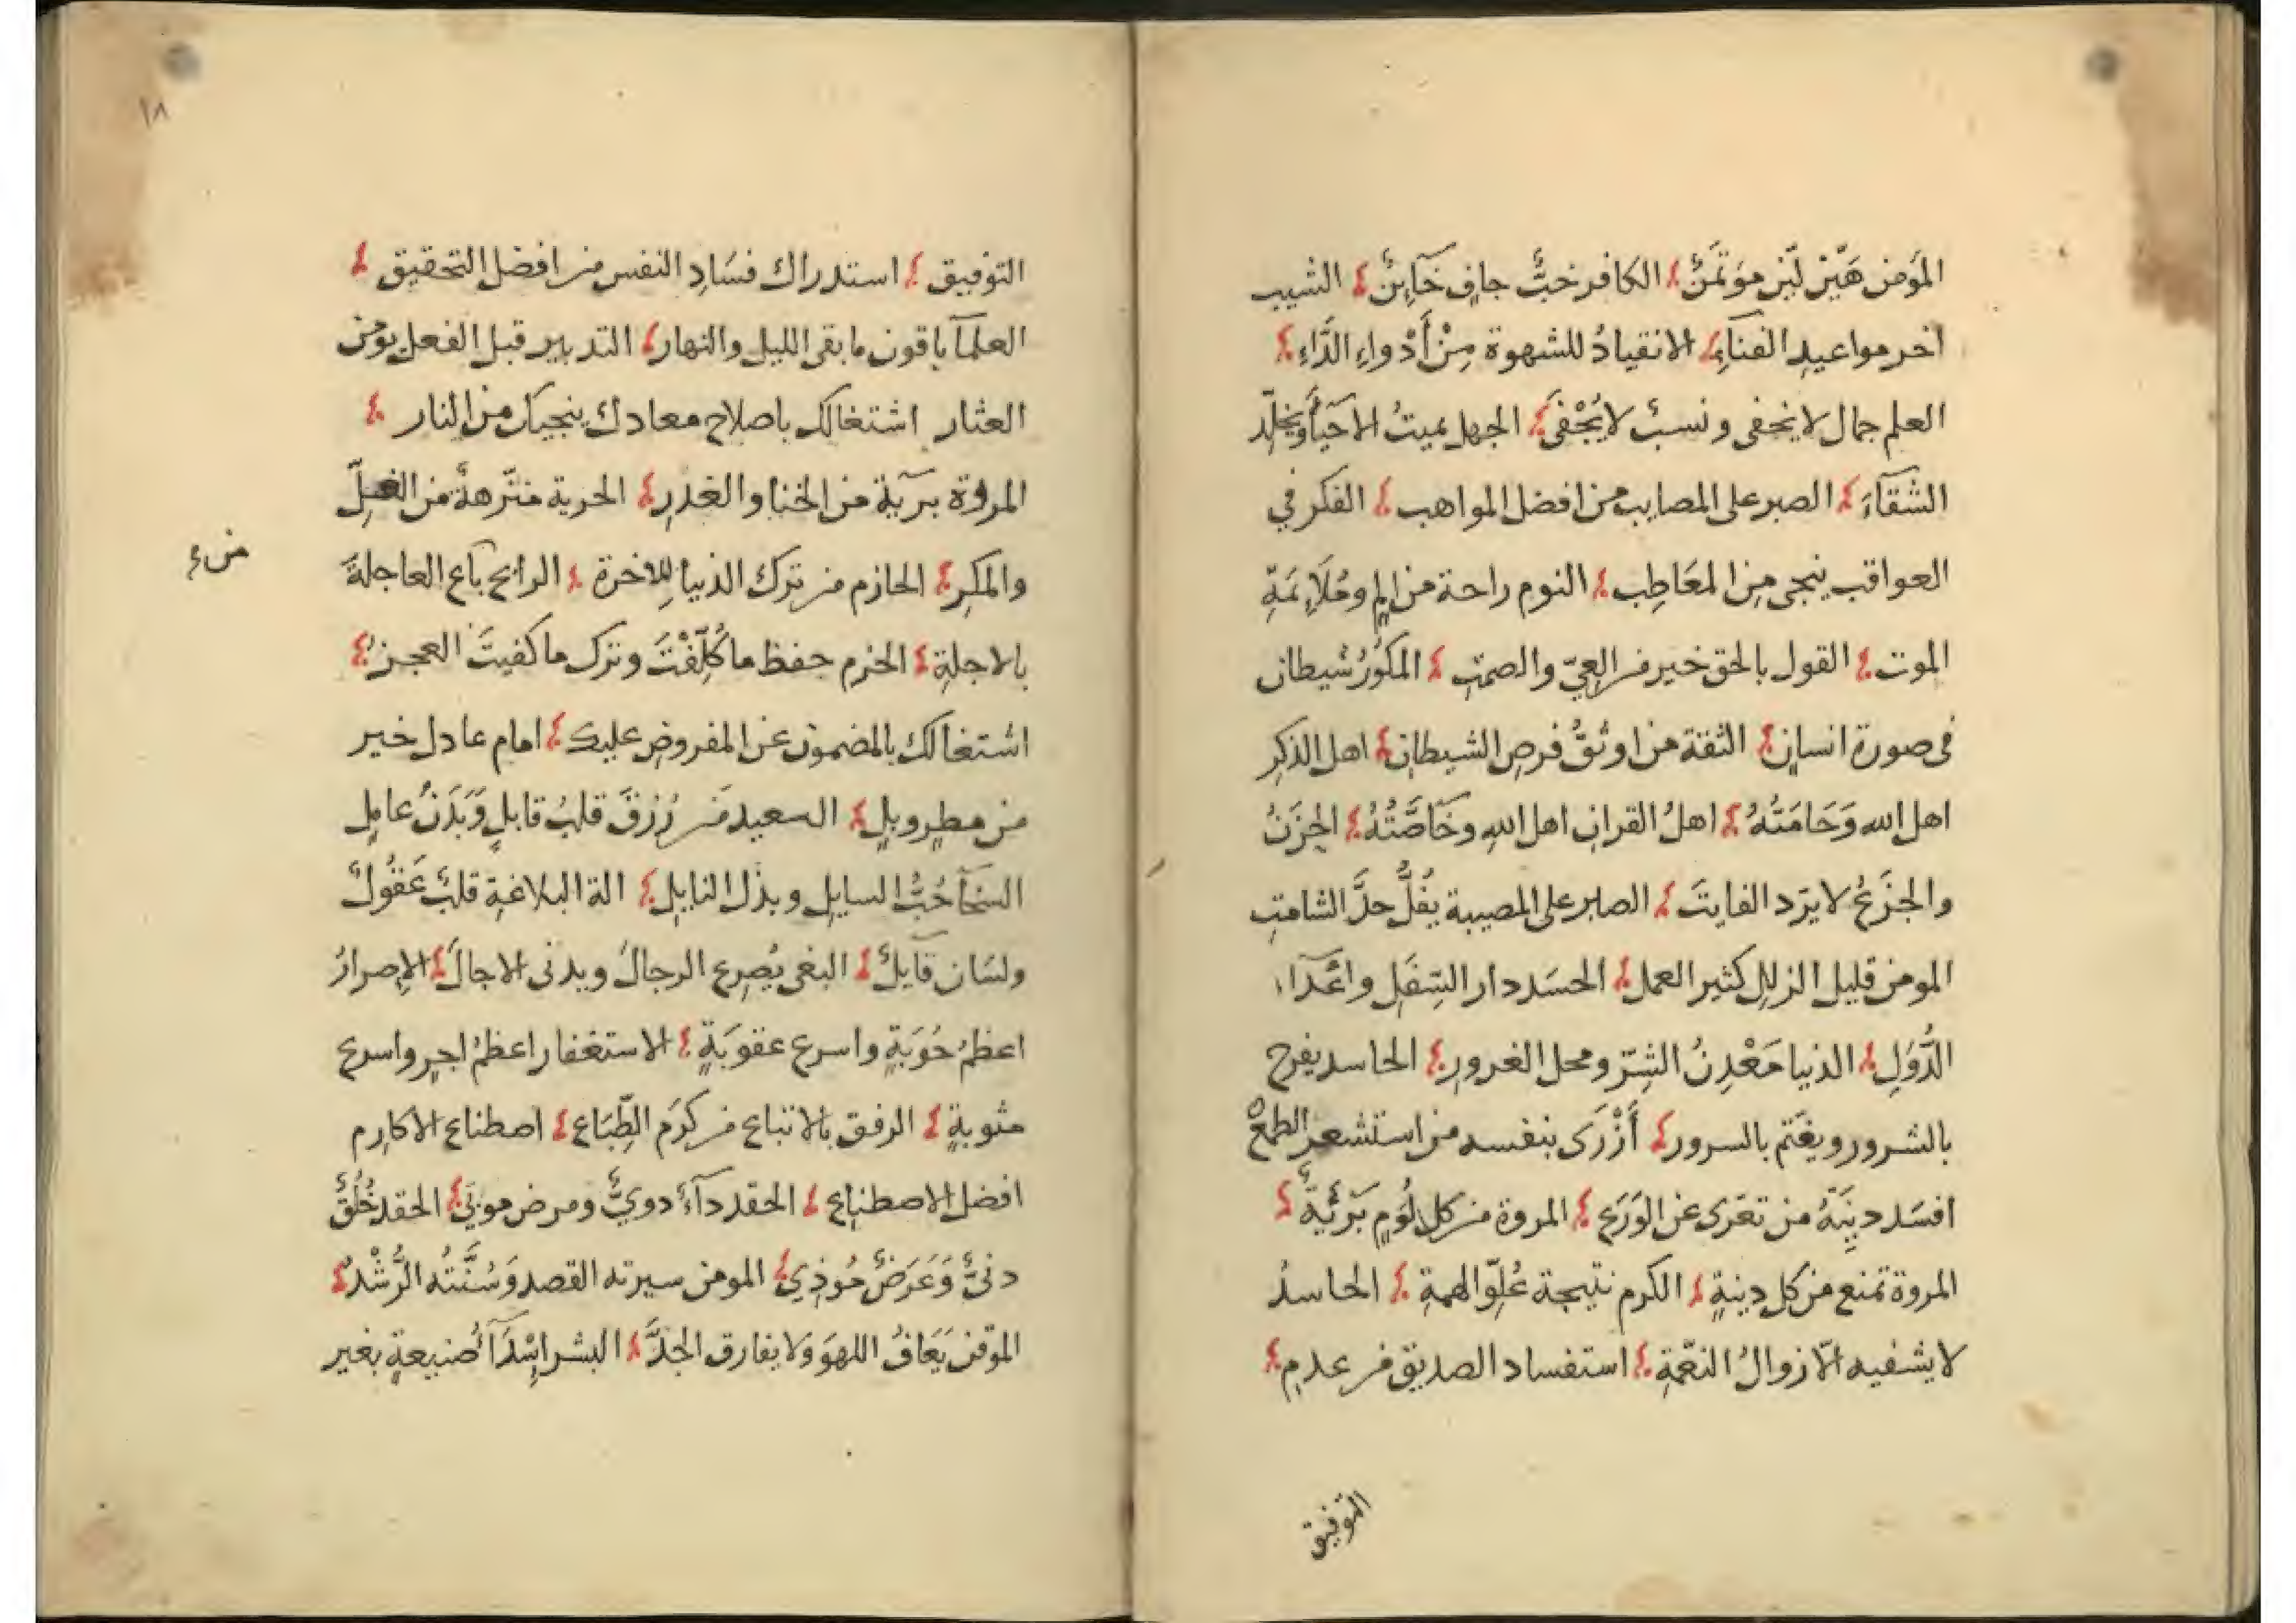 المؤمن هَيّن لَيّن مؤتمَنٌ الكافر خبٌّ جافٍ خَآئِنٌ الشيب
اخر مواعيدِ الفنآءِ الانقيادُ للشهوة مِنْ أَدْواءِ الدَّاءِ
العلم جمال لا يخفى ونسبٌ لا يُجْفَى الجهل يميتُ الاحيآءَ ويخلّد
الشقآءَ الصبر على المصايب من افضل المواهب الفكر في
العواقب ينجى مِن المعَاطِب النوم راحة من الم ومُلَاءِمَةِ
الموت القول بالحق خير من العِيّ والصمتِ المكُورُ شيطان
فى صورة انسانٍ الثقة من اوثقُ فرصِ الشيطانِ اهل الذكرِ
اهل الله وَحَامَتُهُ اهلُ القرانِ اهل اللهِ وخَاصَّتُهُ الحزَنُ
والجَزَعُ لا يرّد الفايتَ الصابر على المصيبة يفُلُّ حدَّ الشامتِ
المومن قليل الزللِ كثير العمل الحسَد دار السِفَلِ واعْدَآء
الدُّوَلِ الدنيا مَعْدِنُ الشرِّ ومحل الغرورِ الحاسد يفرح
بالشرور ويغتم بالسرور أَزْرَى بنفسه من استشعر الطمعْ
افسَد دِينَهُ من تعَرى عن الوَرَع المروة من كل لُوَمٍ بَرّيةٌ
المروة تمنع من كل دينةٍ الكرم نتيجة عُلوِّ الهمةِ الحاسدُ
لا يشفيه الّا زوالُ النعّمةِ استفساد الصديق من عدمِ
التوفيق
١٨
التوفيق استدراك فسَادِ النفس من افضل التحقيق
العلمآ باقون ما بقى الليل والنهار التدبير قبل الفعل يومن
العثار اشتغالك باصلاح معادك ينجيك من النار
المروة بريّة من الخنا والغدرِ الحرية منزّهةٌ من الغِلِّ
والمكرِ الحازم من ترك الدنيا للاخرة الرابح باع العاجلةَ
من
بالاجلةِ الحزم حفظ ما كُلِّفْتَ وترك ما كفيتَ العجز
اشتغالك بالمضمون عن المفروضِ عليك امام عادل خير
من مطرٍ وبلٍ السعيد مَن رُزقَ قلبٌ قابلٍ وَبَدَنٌ عاملٍ
السَخآ حُبُّ السايلِ وبذل النايلِ الة البلاغةِ قلبٌ عَقُولٌ
ولسَان قآيلٌ البغى يُصرِع الرجالَ ويدنى الاجالَ الإصرارُ
اعظمُ حُوبَةٍ واسرع عقوبَةٍ الاستغفار اعظمُ اجرٍ واسرع
مثوبةٍ الرفق بالاتباع من كرَم الطِّبَاع اصطناع الاكارِم
افضل الاصطناع الحقد دآءٌ دويٌّ ومرض موبيٌ الحقد خُلُقٌ
دنىٌّ وَعَرَضٌ مُوذِي المومن سيرته القصد وَسُنَّتُه الرُّشْدُ
الموقن يَعَافُ اللهوَ وَلا يفارق الجدَّ البشر ابْتدَآءُ صنيعةٍ بغير